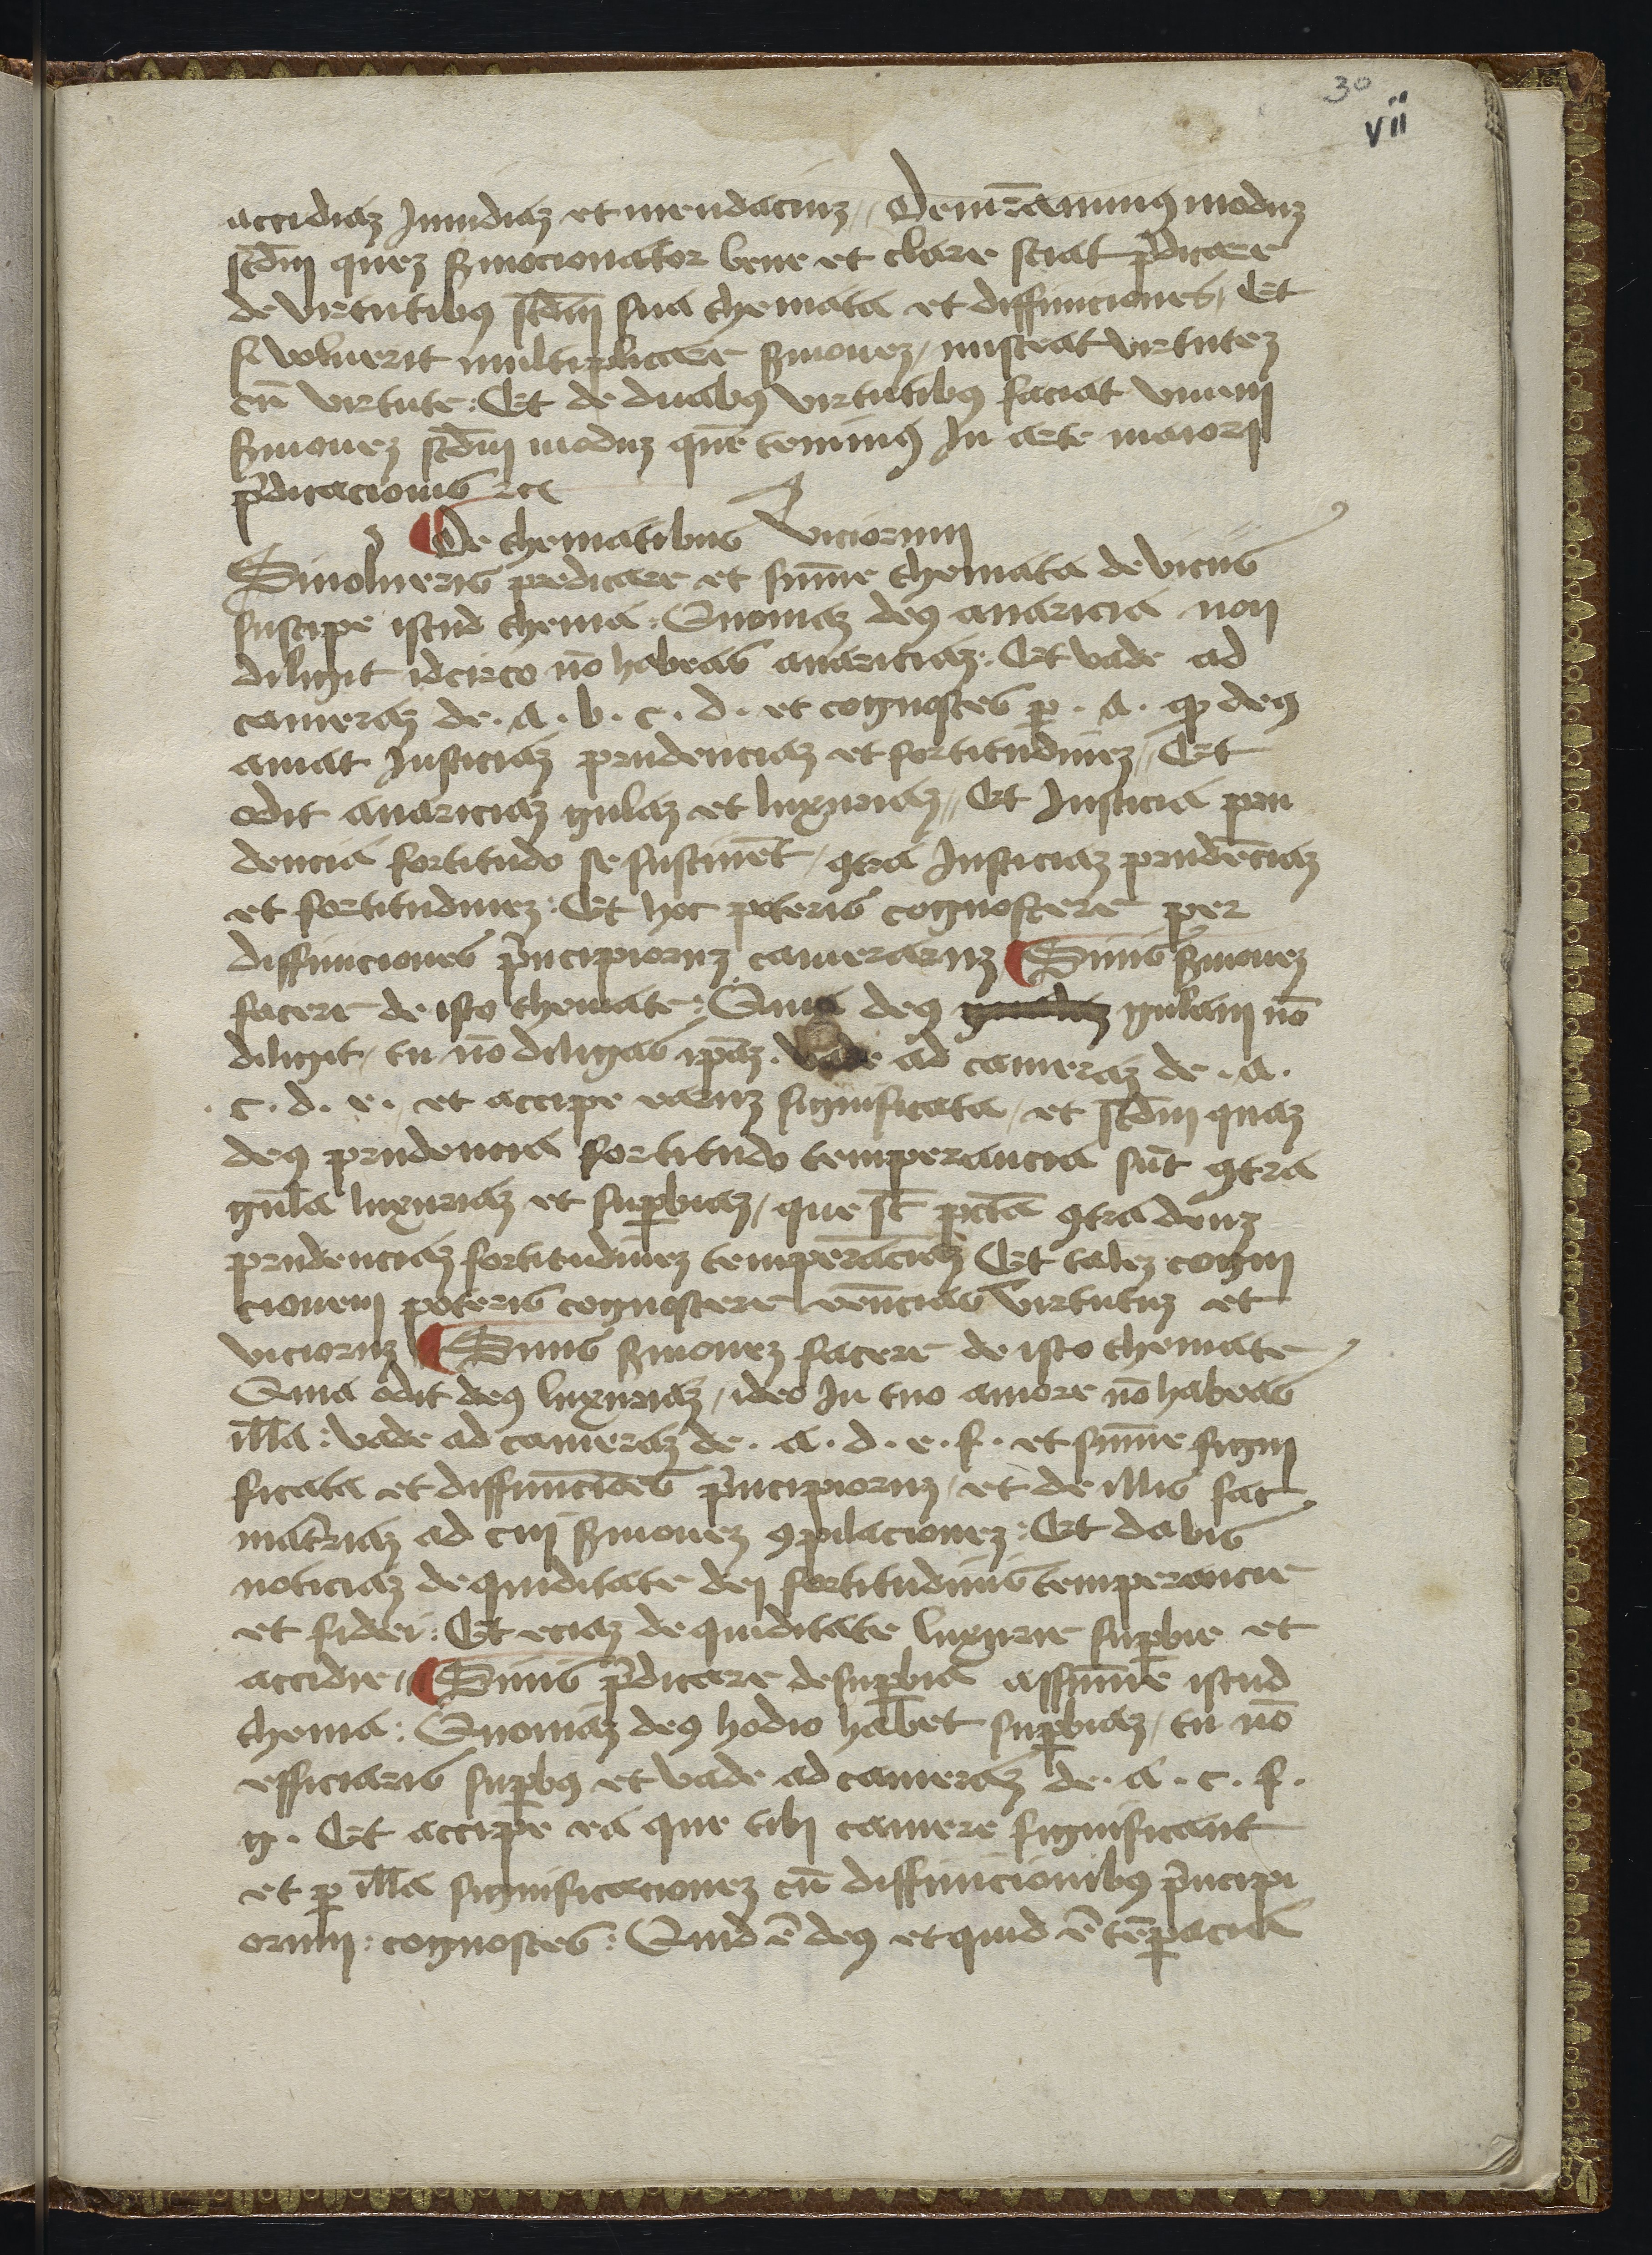 30
vii
accidiaꝫ Inuidiaꝫ et mendaciuꝫ // Demr̄auimꝰ moduꝫ
scd̄m queꝫ ẜmocionator bene et clare sciat p̄dicare
de virtutibꝰ scd̄m sua themata et diffiniciones / Et
si voluerit multiplicare ẜmoneꝫ / misceat virtuteꝫ
cū virtute : Et de duabꝰ virtutibꝰ faciat vnum
ẜmoneꝫ scd̄m moduꝫ quē tenimꝰ In arte maiori
p̄dicacionis ⁊cꝭ
De thematibus viciorum
Si volueris predicare et summe themata de viciis
suscipe istud thema : Quoniaꝫ deꝰ auaricia non
diligit idcirco nō habeas auariciaꝫ . Et vade ad
cameraꝫ de . a . b . c . d . et cognosces ꝑ . a . ꝙ deꝰ
amat Iusticiaꝫ prudenciaꝫ et fortitudineꝫ // Et
odit auariciaꝫ gulaꝫ et luxuriaꝫ // Et Iusticia pru
dencia fortitudo se sustinēt / ꝯtra Iusticiaꝫ prudēciaꝫ
et fortitudineꝫ : Et hoc poteris cognoscere per
diffiniciones p̄ncipioruꝫ cameraruꝫ Si uis ẜmoneꝫ
facere de isto themate : Quia deꝰ gulam nō
diligit / tu nō diligas ip̄aꝫ . vade ad cameraꝫ de . a .
. c . d . e . et accipe earuꝫ significata / et scd̄m quaꝫ
deꝰ prudencia fortitudo temperancia sūt ꝯtra
gulā luxuriaꝫ et suꝑbiaꝫ / que st̄ pctā ꝯtra deuꝫ
prudenciaꝫ fortitudineꝫ temperāciaꝫ Et taleꝫ cogni
cionem poteris cognoscere eēncias virtutuꝫ et
vicioruꝫ Si uis ẜmoneꝫ facere de isto themate
Quia odit deꝰ luxuriaꝫ / ideo In tuo amore nō habeas
illā : vade ad cameraꝫ de . a . d . e . f . et summe signi
ficata et diffiniciōes p̄ncipioruꝫ / et de illis fac
mat̄riaꝫ ad cuꝫ ẜmoneꝫ ꝯpilacioneꝫ : Et dabis
noticiaꝫ de quiditate dei fortitudinis temperancie
et fidei : Et eciaꝫ de quiditate luxurie suꝑbie et
accidie // Si uis p̄dicare de suꝑbia assumme istud
thema : Quoniaꝫ deꝰ hodio habet suꝑbiaꝫ / tu nō
efficiaris suꝑbꝰ et vade ad cameraꝫ de . a . c . f .
g . Et accipe ea que tibi camere significant
et ꝑ illā significacioneꝫ cū diffinicionibꝰ p̄ncipi
orum : cognosces : Quid ē deꝰ et quid ē tēꝑacia